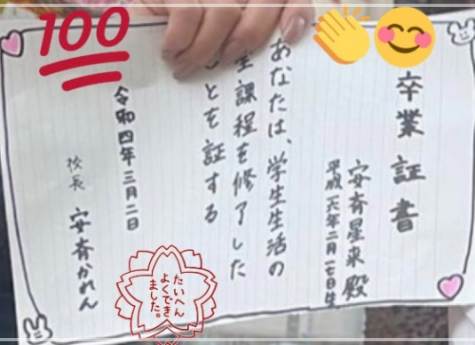 卒業証書
安斉星来殿
平成一六年二月一七日生
あなたは、学生生活の
全課程を修了した
ことを証する
令和四年三月二日
校長 安斉かれん
100
たいへん
よくでき
ました。